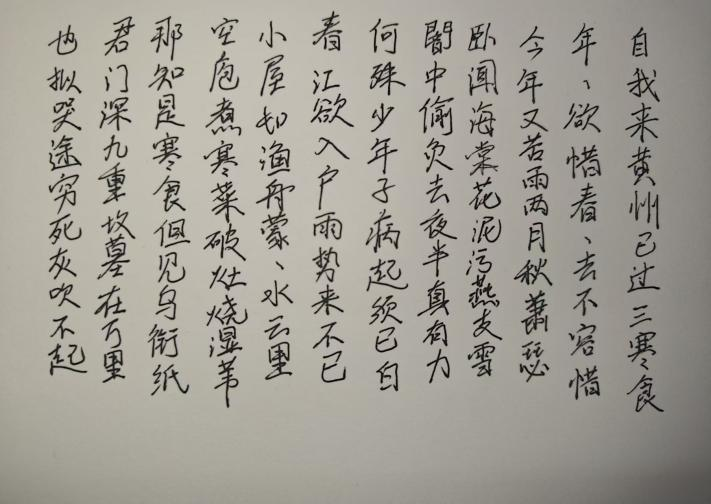 自我来黄州已过三寒食
年、欲惜春、去不容惜
今年又苦雨两月秋萧瑟
卧闻海棠花泥污燕支雪
闇中偷负去夜半真有力
何殊少年子病起须已白
春江欲入户雨势来不已
小屋如渔舟蒙、水云里
空庖煮寒菜破灶烧湿苇
那知是寒食但见乌衔纸
君门深九重坟墓在万里
也拟哭途穷死灰吹不起